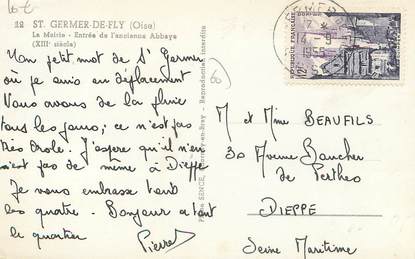 12 ST. GERMER-DE-FLY (Oise)
La Mairie - Entrée de l'ancienne Abbaye
(XIIIe siècle)
Un petit mot de St Germer
où je suis en déplacement
Nous avons de la pluie
tous les jours, ce n'est pas
très drole. J'espère qu'il n'en
n'est pas de même à Dieppe
Je vous embrasse tous
les quatre. Bonjour à tout
le quartier
Pierre
Reproduction interdite
60
RÉPUBLIQUE FRANÇAISE
12F
14 - 9
1955
M et Mme BEAUFILS
30 Avenue Boucher
de Perthes
DIEPPE
Seine Maritime